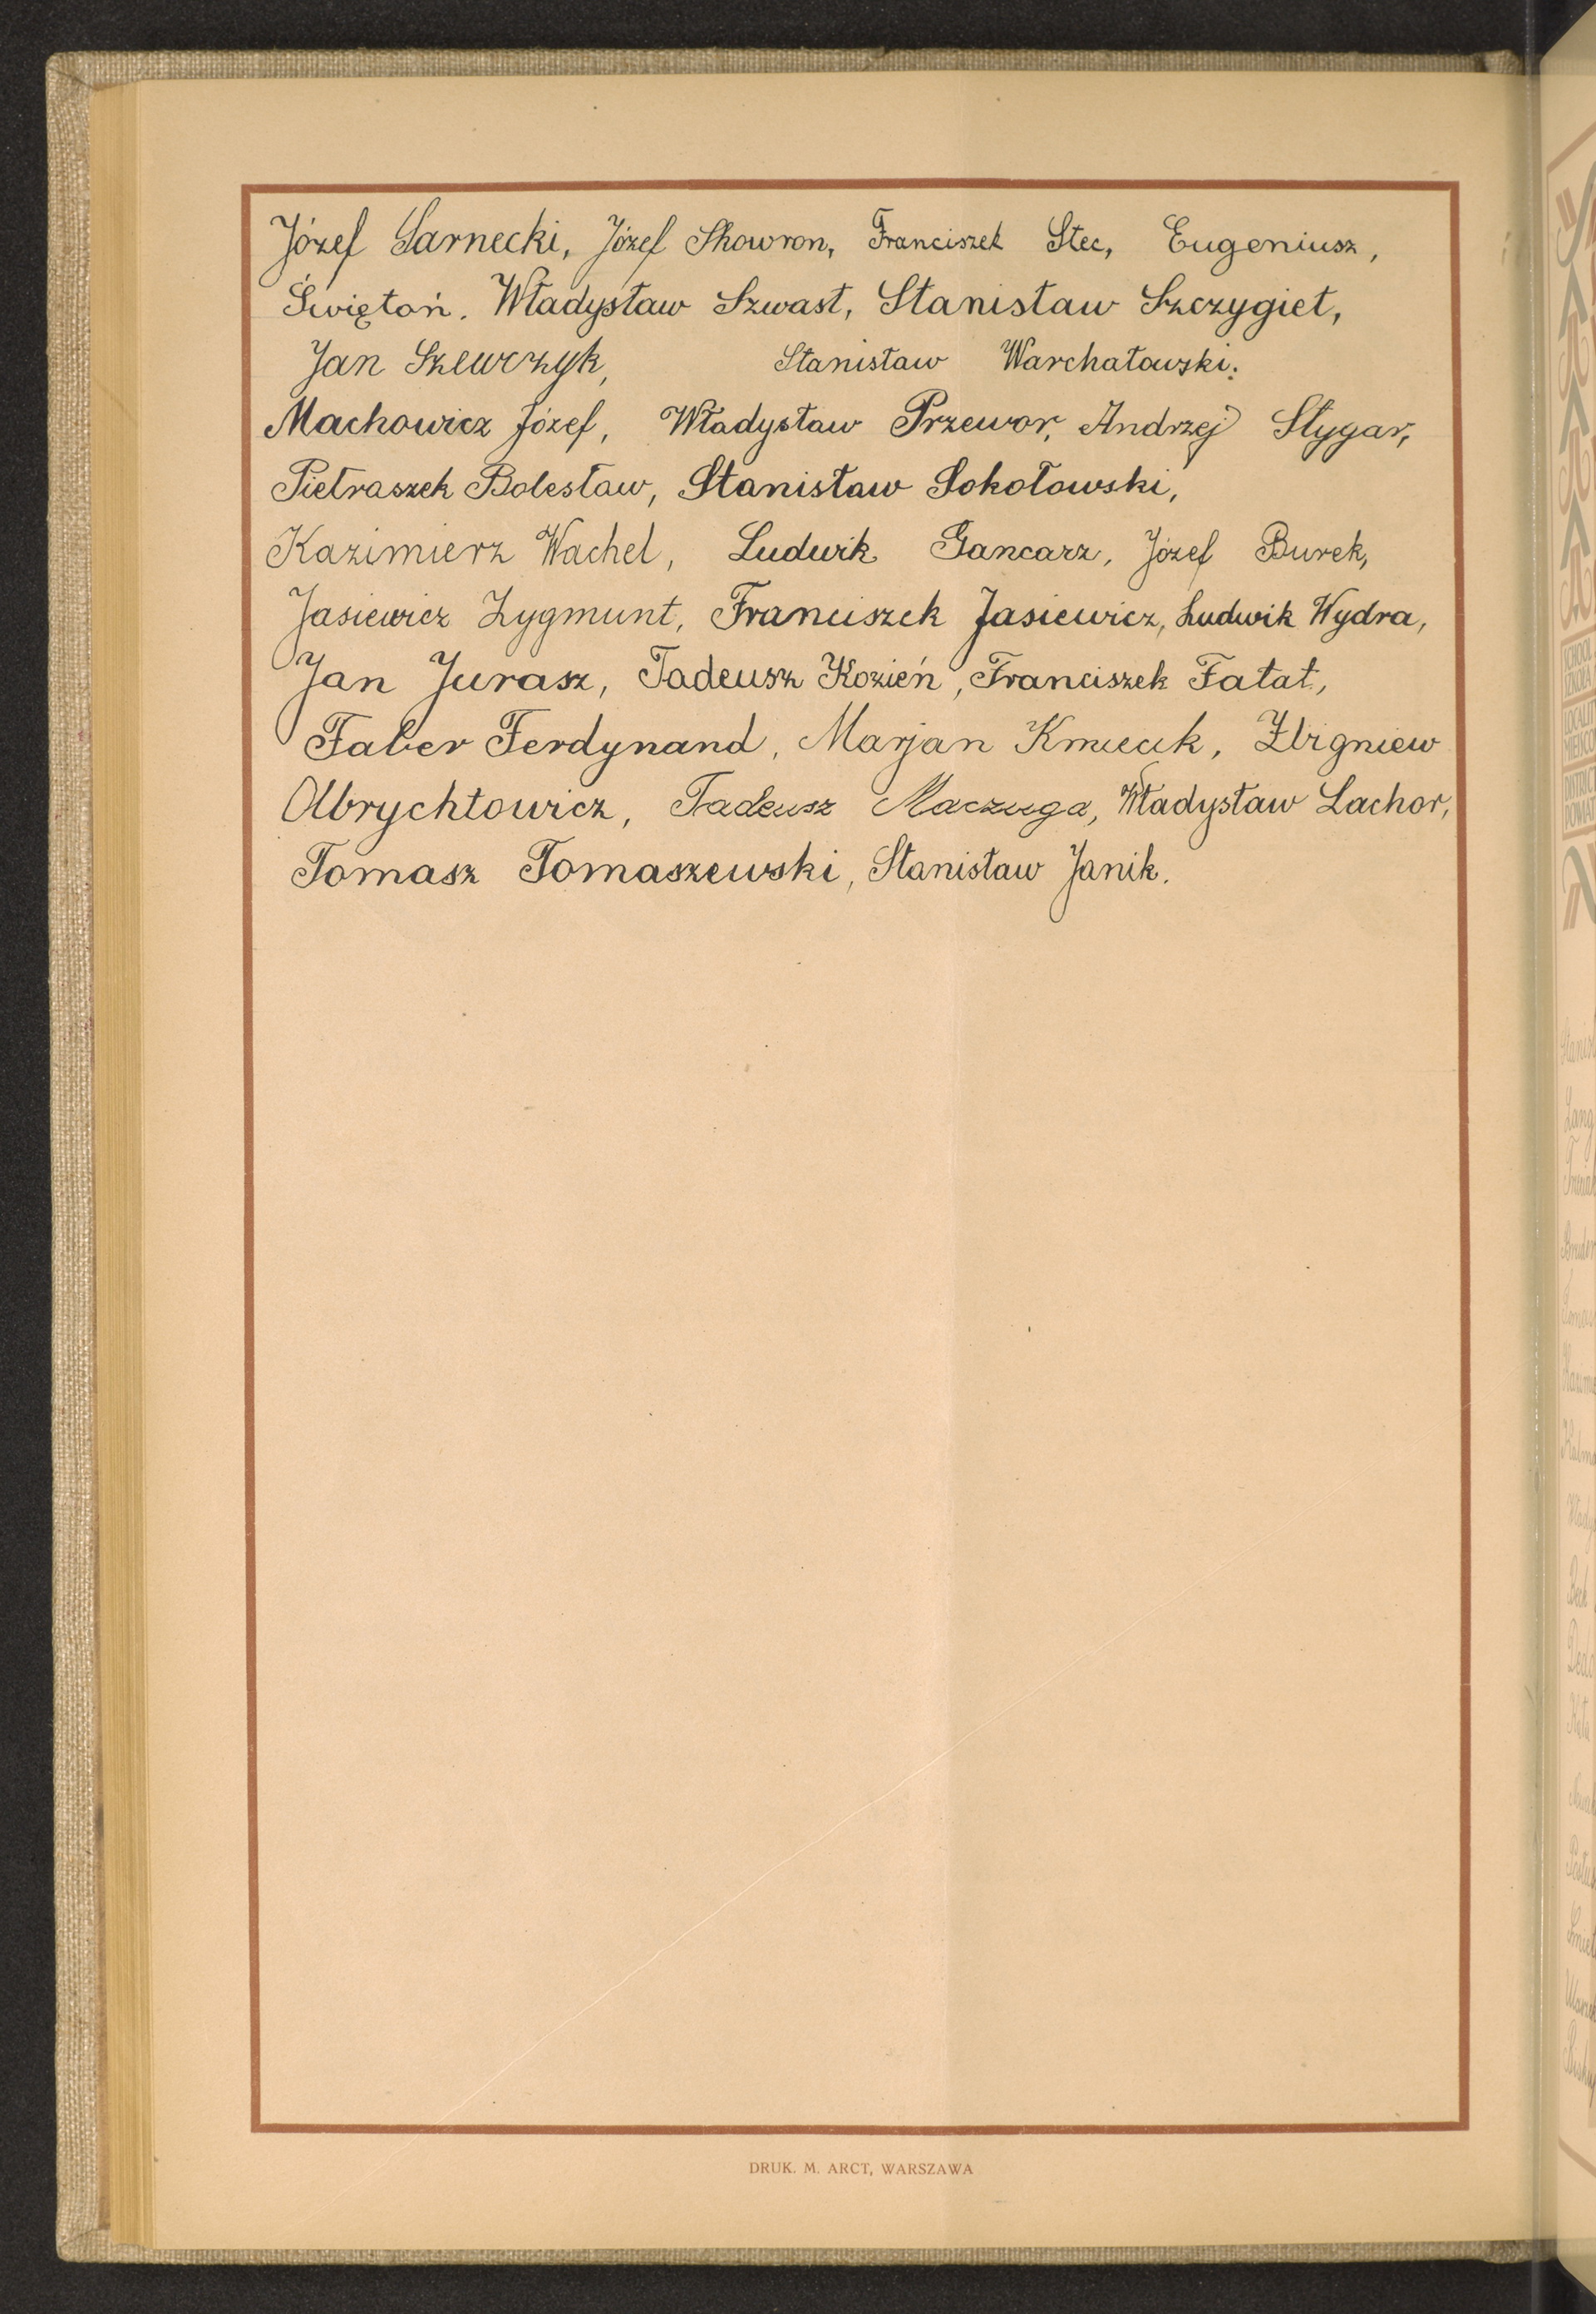 Józef Sarnecki, Józef Skowron, Franciszek Stec, Eugeniusz,
Świętoń. Władysław Szwast, Stanisław Szczygieł,
Jan Szewczyk, Stanisław Warchałowski.
Machowicz Józef, Władysław Przewor, Andrzej Stygar,
Pietraszek Bolesław, Stanisław Sokołowski,
Kazimierz Wachel, Ludwik Gancarz, Józef Burek,
Jasiewicz Zygmunt, Franciszek Jasiewicz, Ludwik Wydra,
Jan Jurasz, Tadeusz Kozień, Franciszek Fatat,
Faber Ferdynand, Marjan Kmiecik, Zbigniew
Olbrychtowicz, Tadeusz Maczuga, Władysław Lachor,
Tomasz Tomaszewski, Stanisław Janik.
DRUK. M. ARCT, WARSZAWA